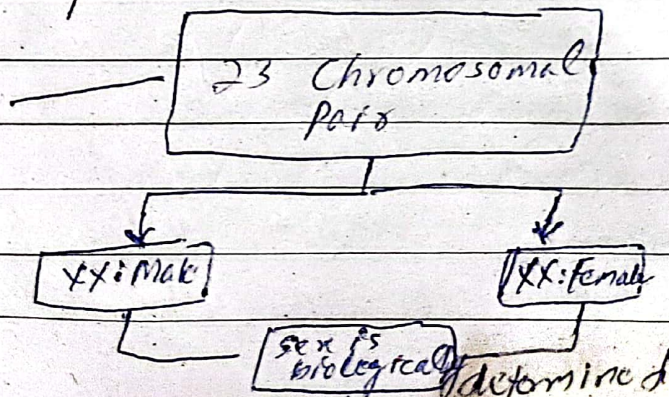 23 Chromosomal
Pair
XX: Male
XX: Female
sex is
biologically determined